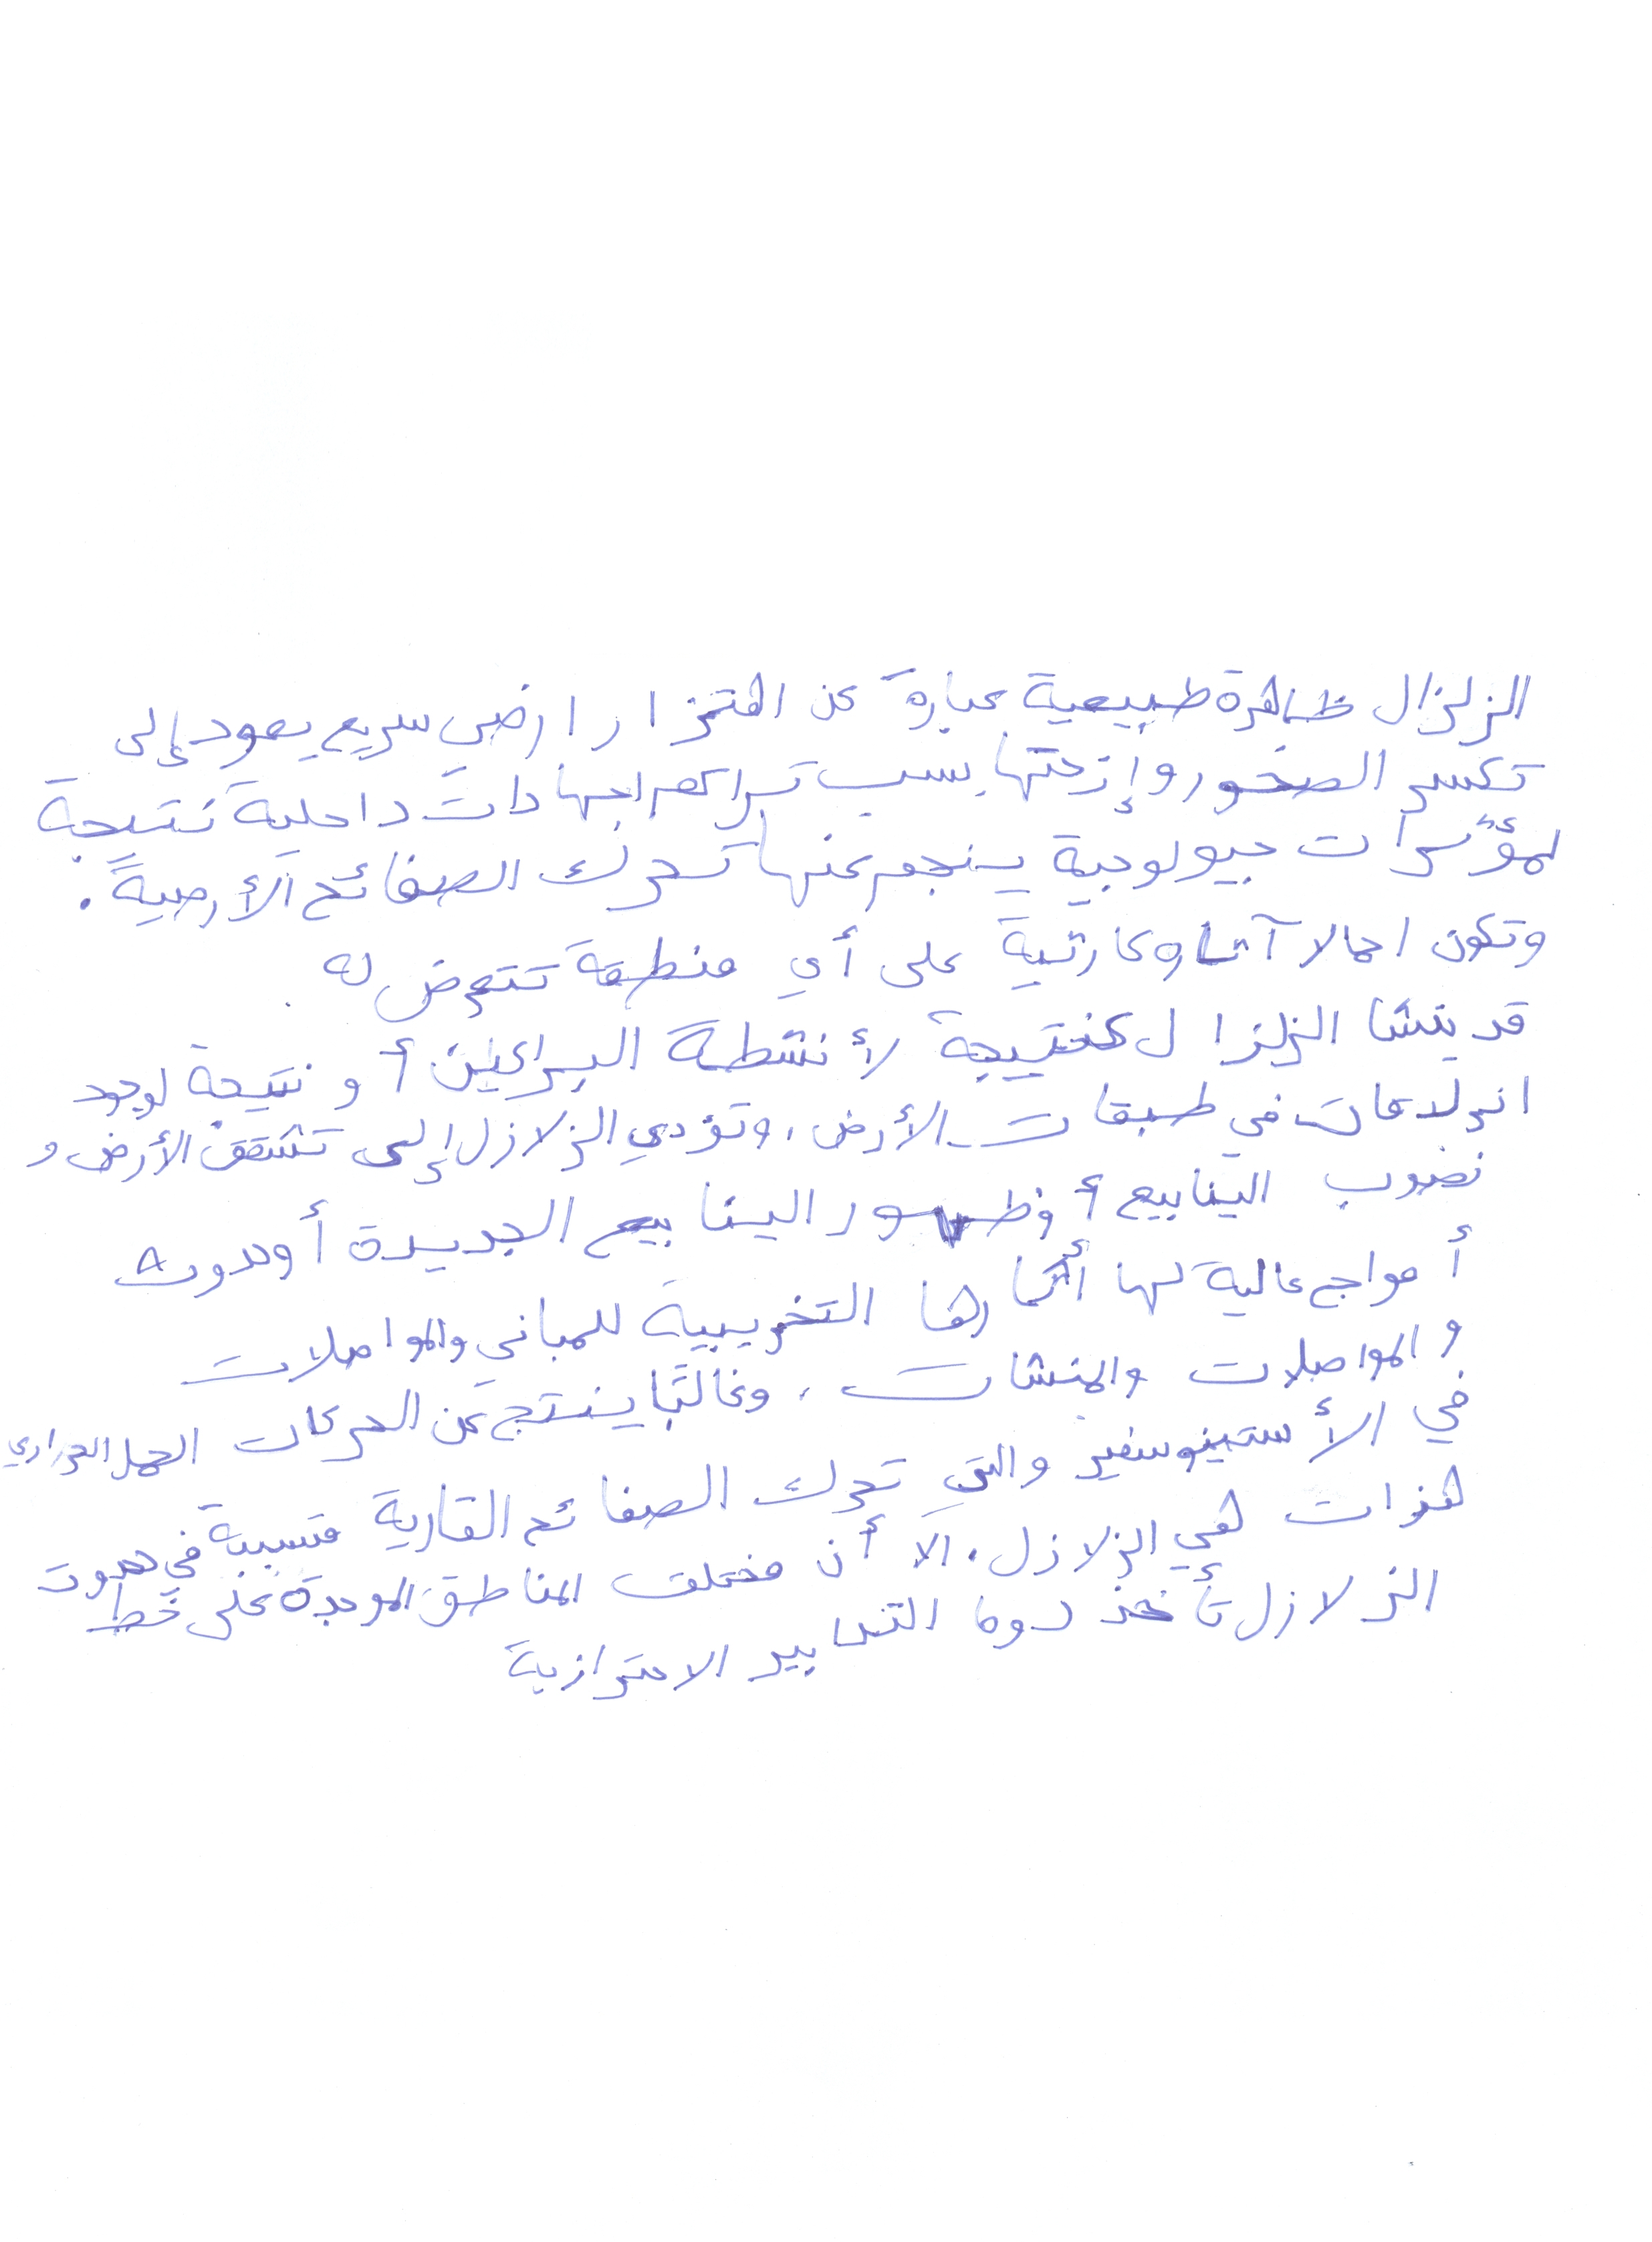 الزلزال ظاهرة طبيعية عبارة عن اهتزاز ارضي سريع يعود إلى
تكسر الصخور وإزحتها بسبب تراكم اجهادات داخلية نتيجة
لمؤثرات جيولوجية ينجم عنها تحرك الصفائح الأرضية.
وتكون اجمالا آثاره كارثية على أي منطقة تتعرض له.
قد ينشا الزلزال كنتيجة لأنشطة البراكين أو نتيجة لوجود
انزلاقات في طبقات الأرض، وتؤدي الزلازل إلى تشقق الأرض و
نضوب الينابيع أو ظهور الينابيع الجديدة أو حدوث
أمواج عالية لها أثارها التخريبية للمباني والمواصلات
و المواصلات والمنشات، وغالبًا ينتج عن الحركات الحمل الحراري
في الأستينوسفير والتي تحرك الصفائح القارية متسببة في حدوث
هزات هي الزلازل. الا أن مختلف المناطق الموجدة على خط
الزلازل تأخذ دوما التدابير الاحترازية